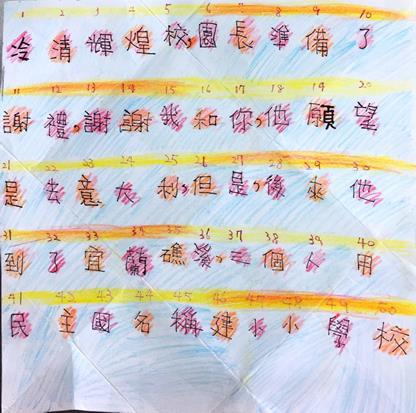 1 2 3 4 5 6 7 8 9 10
冷清輝煌校園長準備了
11 12 13 14 15 16 17 18 19 20
謝禮,謝謝我和你,他願望
21 22 23 24 25 26 27 28 29 30
是去意大利,但是,後來他
31 32 33 34 35 36 37 38 39 40
到了宜蘭礁溪三個人用
41 42 43 44 45 46 47 48 49 50
民主國名稱建小小學校